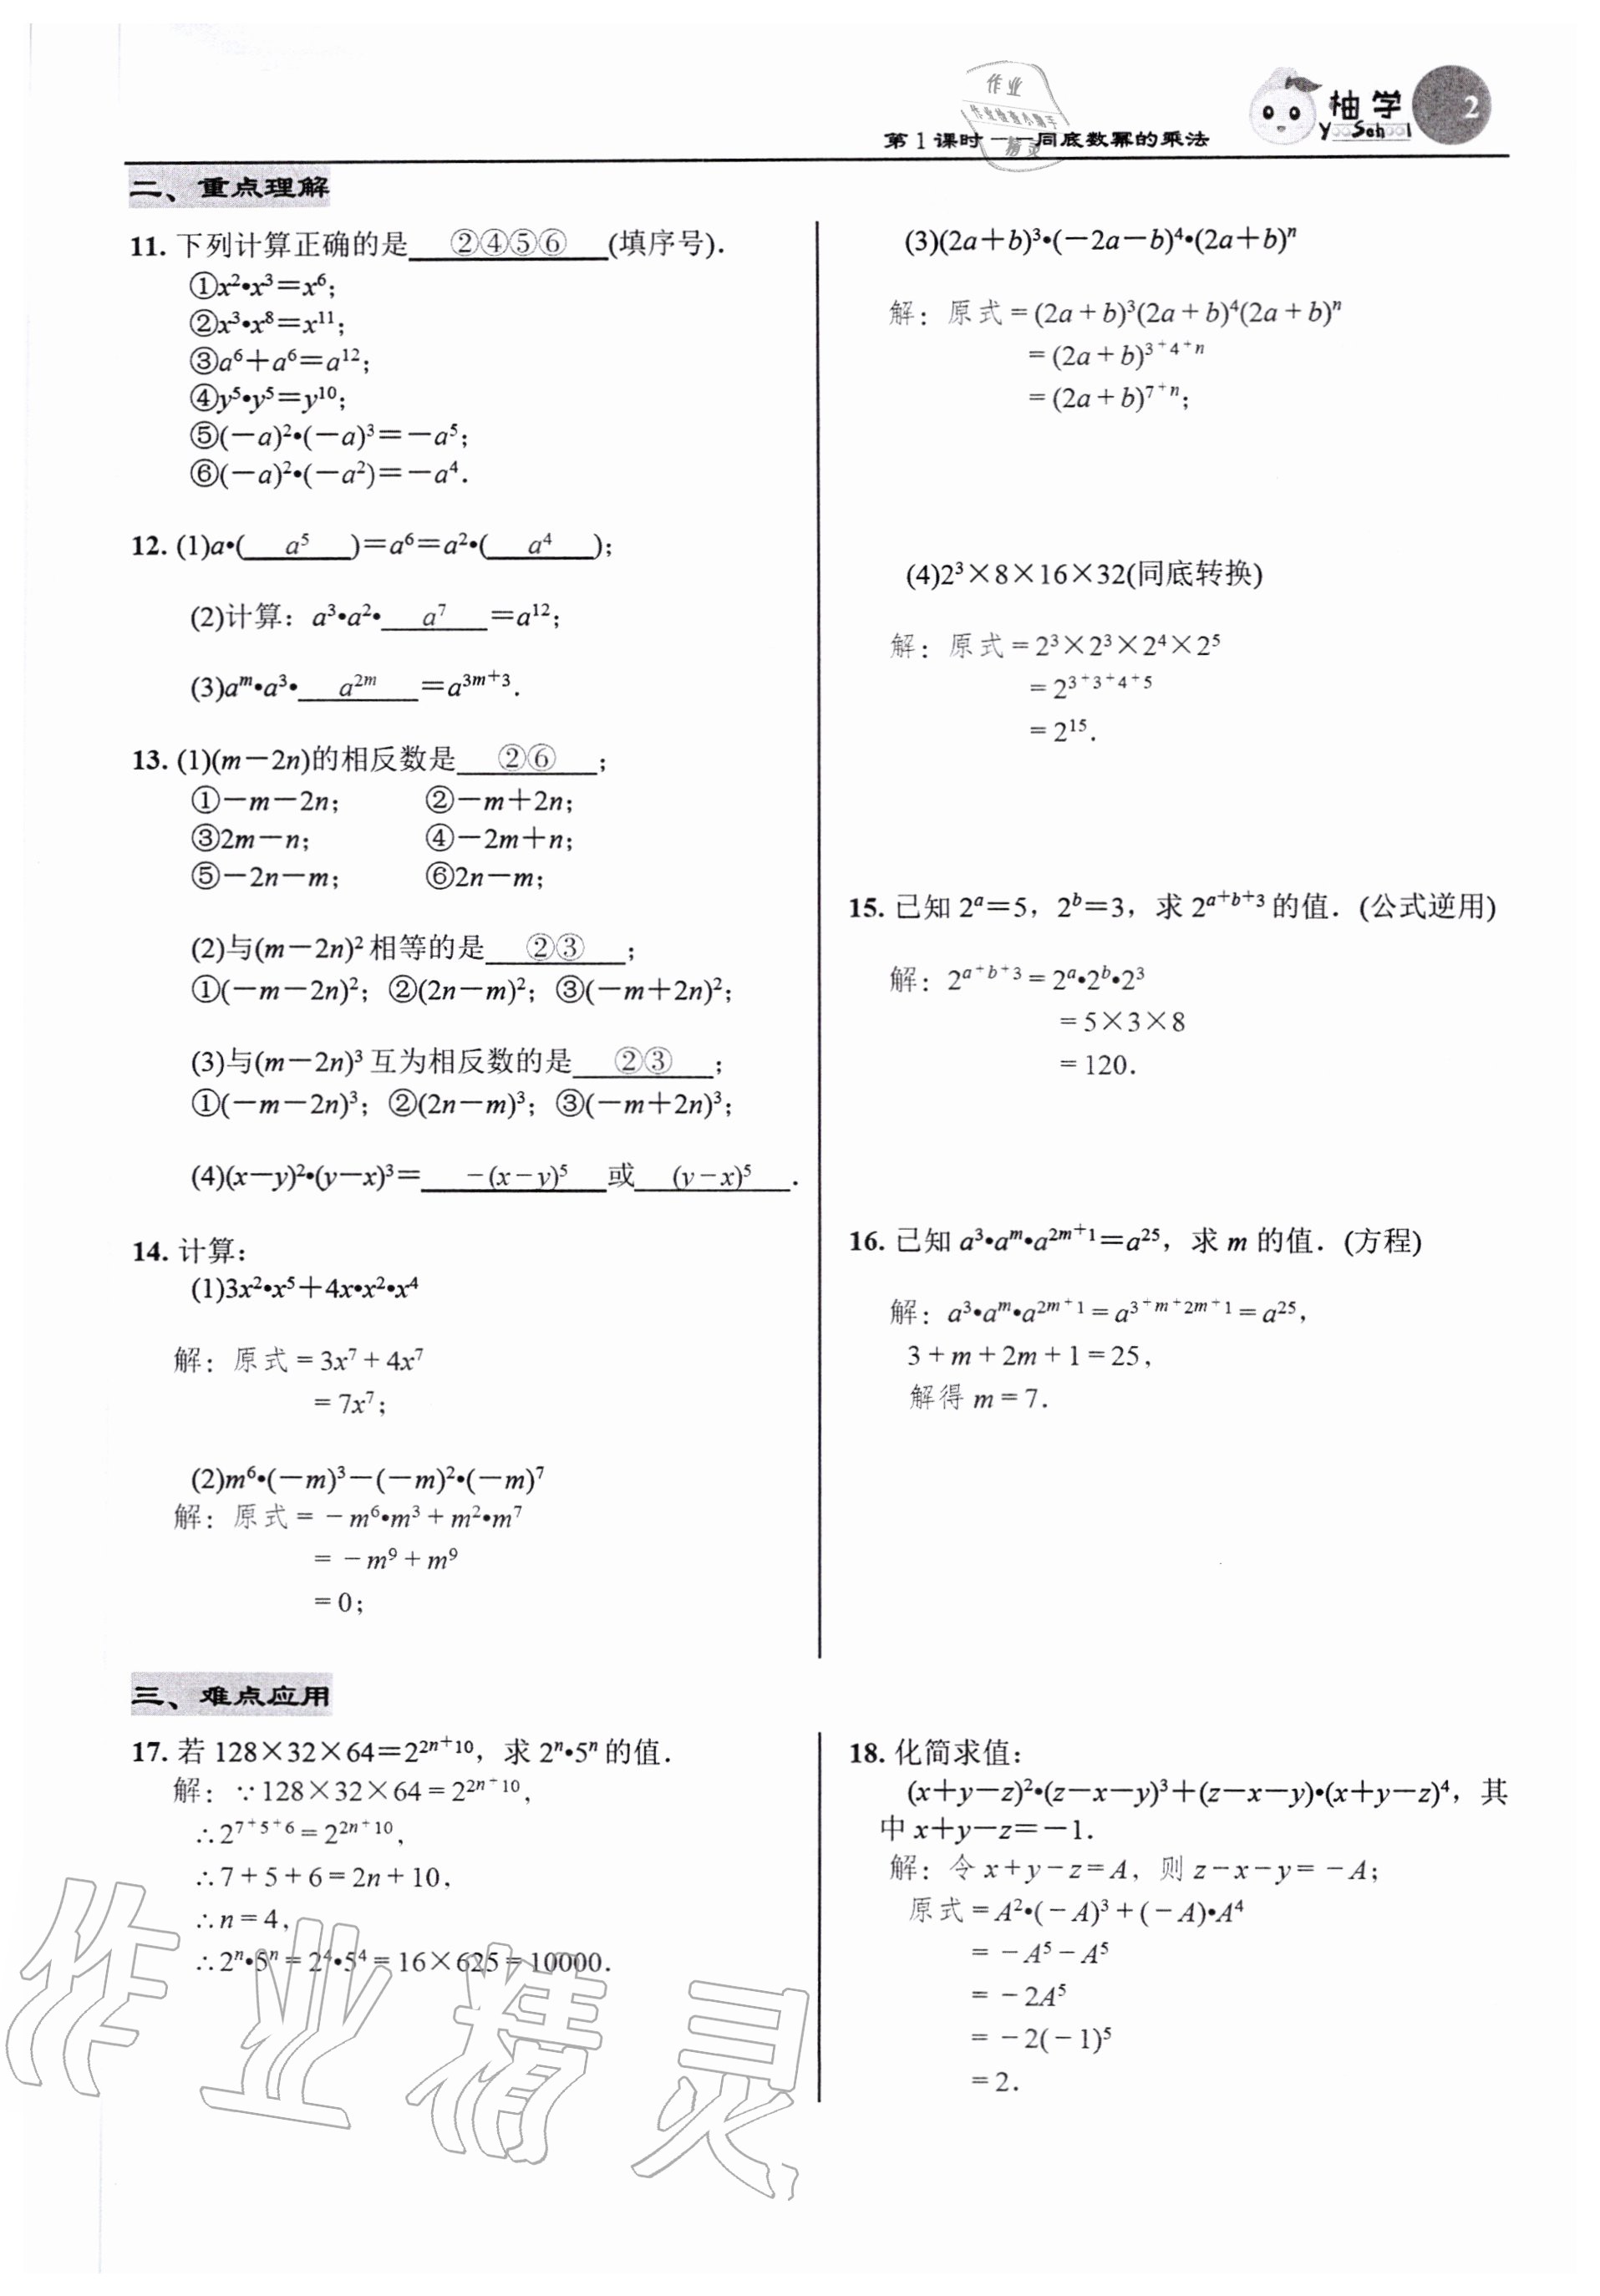 作业
作业检查小助手
精灵
第1课时——同底数幂的乘法
柚学
YooSchool
2
二、重点理解
11. 下列计算正确的是②④⑤⑥(填序号).
①x²•x³=x⁶;
②x³•x⁸=x¹¹;
③a⁶+a⁶=a¹²;
④y⁵•y⁵=y¹⁰;
⑤(-a)²•(-a)³=-a⁵;
⑥(-a)²•(-a²)=-a⁴.
12. (1)a•(a⁵)=a⁶=a²•(a⁴);
(2)计算: a³•a²•a⁷=a¹²;
(3)aᵐ•a³•a²ᵐ=a³ᵐ⁺³.
13. (1)(m-2n)的相反数是②⑥;
①-m-2n; ②-m+2n;
③2m-n; ④-2m+n;
⑤-2n-m; ⑥2n-m;
(2)与(m-2n)²相等的是②③;
①(-m-2n)²; ②(2n-m)²; ③(-m+2n)²;
(3)与(m-2n)³互为相反数的是②③;
①(-m-2n)³; ②(2n-m)³; ③(-m+2n)³;
(4)(x-y)²•(y-x)³=-(x-y)⁵或(y-x)⁵.
14. 计算:
(1)3x²•x⁵+4x•x²•x⁴
解: 原式=3x⁷+4x⁷
=7x⁷;
(2)m⁶•(-m)³-(-m)²•(-m)⁷
解: 原式=-m⁶•m³+m²•m⁷
=-m⁹+m⁹
=0;
(3)(2a+b)³•(-2a-b)⁴•(2a+b)ⁿ
解: 原式=(2a+b)³(2a+b)⁴(2a+b)ⁿ
=(2a+b)³⁺⁴⁺ⁿ
=(2a+b)⁷⁺ⁿ;
(4)2³×8×16×32(同底转换)
解: 原式=2³×2³×2⁴×2⁵
=2³⁺³⁺⁴⁺⁵
=2¹⁵.
15. 已知2ᵃ=5, 2ᵇ=3, 求2ᵃ⁺ᵇ⁺³的值. (公式逆用)
解: 2ᵃ⁺ᵇ⁺³=2ᵃ•2ᵇ•2³
=5×3×8
=120.
16. 已知a³•aᵐ•a²ᵐ⁺¹=a²⁵, 求m的值. (方程)
解: a³•aᵐ•a²ᵐ⁺¹=a³⁺ᵐ⁺²ᵐ⁺¹=a²⁵,
3+m+2m+1=25,
解得m=7.
三、难点应用
17. 若128×32×64=2²ⁿ⁺¹⁰, 求2ⁿ•5ⁿ的值.
解: ∵128×32×64=2²ⁿ⁺¹⁰,
∴2⁷⁺⁵⁺⁶=2²ⁿ⁺¹⁰,
∴7+5+6=2n+10,
∴n=4,
∴2ⁿ•5ⁿ=2⁴•5⁴=16×625=10000.
18. 化简求值:
(x+y-z)²•(z-x-y)³+(z-x-y)•(x+y-z)⁴, 其
中x+y-z=-1.
解: 令x+y-z=A, 则z-x-y=-A;
原式=A²•(-A)³+(-A)•A⁴
=-A⁵-A⁵
=-2A⁵
=-2(-1)⁵
=2.
作业精灵